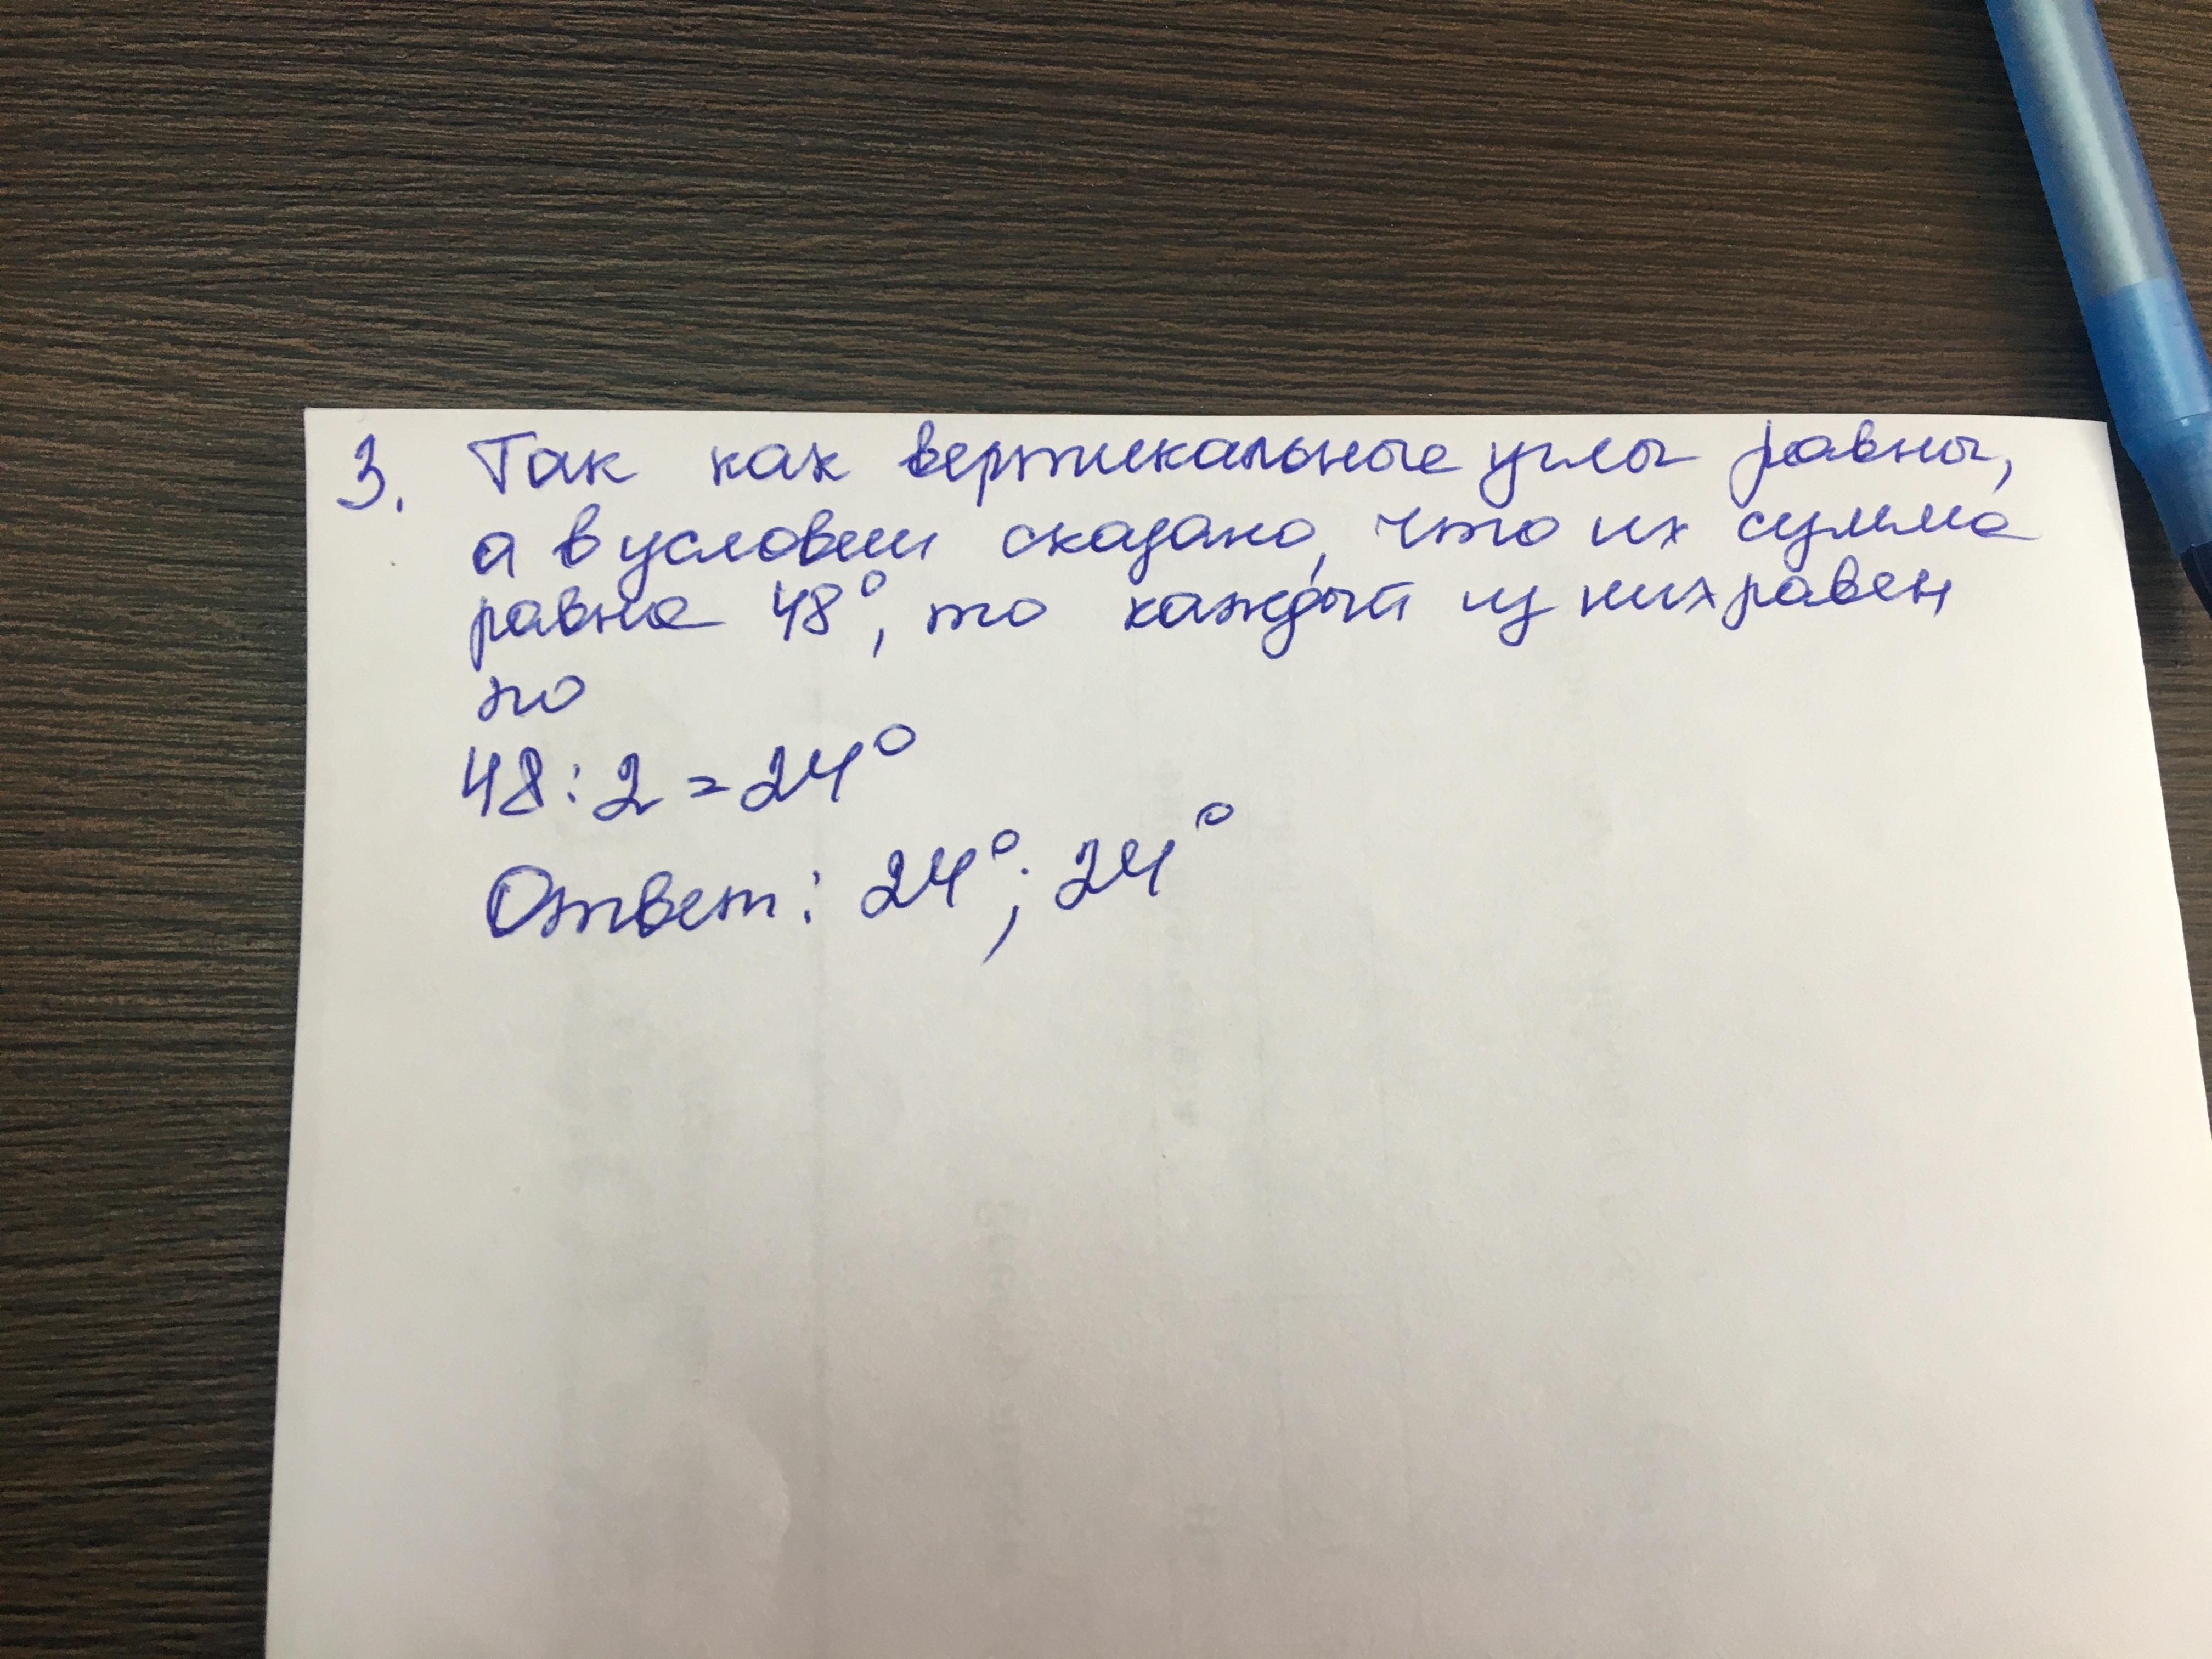 3. Так как вертикальные углы равны,
а в условии сказано, что их сумма
равна 48°, то каждый из них равен
по
48 : 2 = 24°
Ответ: 24°; 24°